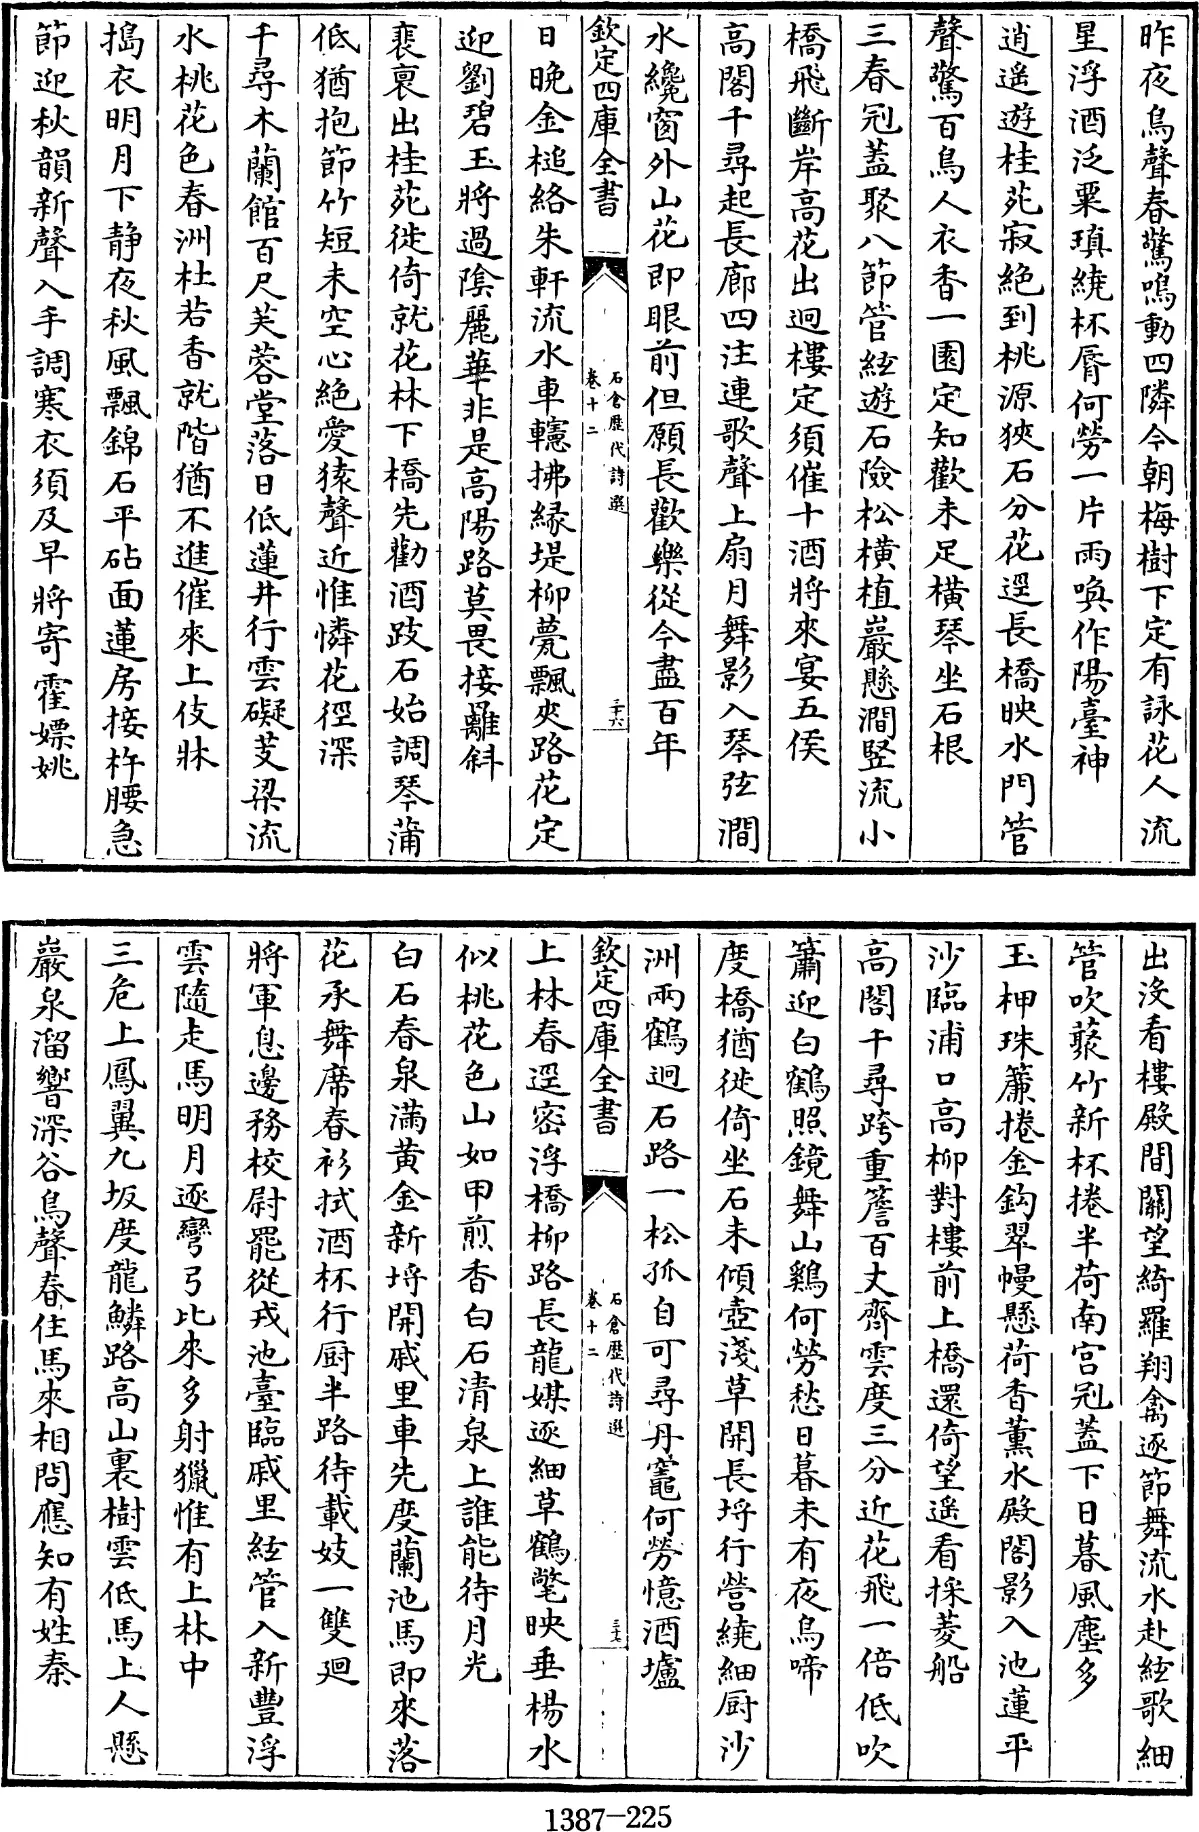 昨夜鳥聲春驚鳴動四隣今朝梅樹下定有詠花人流
星浮酒泛粟瑱繞杯脣何勞一片雨喚作陽臺神
逍遥遊桂苑寂絶到桃源狹石分花逕長橋映水門管
聲驚百鳥人衣香一園定知歡未足横琴坐石根
三春冠蓋聚八節管絃遊石險松横植巖懸澗竪流小
橋飛斷岸高花出迥樓定須催十酒將來宴五侯
高閣千尋起長廊四注連歌聲上扇月舞影入琴弦澗
水纔窗外山花即眼前但願長歡樂從今盡百年
欽定四庫全書
石倉歷代詩選
卷十二
三十六
日晚金槌絡朱軒流水車轓拂緣堤柳甍飄夾路花定
迎劉碧玉將過陰麗華非是高陽路莫畏接䍦斜
裴裛出桂苑徙倚就花林下橋先勸酒跂石始調琴蒲
低猶抱節竹短未空心絶愛猿聲近惟憐花徑深
千尋木蘭館百尺芙蓉堂落日低蓮井行雲礙芰梁流
水桃花色春洲杜若香就階猶不進催來上伎牀
搗衣明月下静夜秋風飄錦石平砧面蓮房接杵腰急
節迎秋韻新聲入手調寒衣須及早將寄霍嫖姚
出没看樓殿間關望綺羅翔禽逐節舞流水赴絃歌細
管吹藂竹新杯捲半荷南宫冠蓋下日暮風塵多
玉柙珠簾捲金鈎翠幔懸荷香薰水殿閣影入池蓮平
沙臨浦口高柳對樓前上橋還倚望遥看採菱船
高閣千尋跨重簷百丈齊雲度三分近花飛一倍低吹
簫迎白鶴照鏡舞山鷄何勞愁日暮未有夜烏啼
度橋猶徙倚坐石未傾壺淺草開長埒行營繞細厨沙
洲兩鶴迥石路一松孤自可尋丹竈何勞憶酒壚
欽定四庫全書
石倉歷代詩選
卷十二
三十七
上林春逕密浮橋柳路長龍媒逐細草鶴氅映垂楊水
似桃花色山如甲煎香白石清泉上誰能待月光
白石春泉滿黄金新埒開戚里車先度蘭池馬即來落
花承舞席春衫拭酒杯行厨半路待載妓一雙廻
將軍息邊務校尉罷從戎池臺臨戚里絃管入新豐浮
雲隨走馬明月逐彎弓比來多射獵惟有上林中
三危上鳳翼九坂度龍鱗路高山裏樹雲低馬上人懸
巖泉溜響深谷鳥聲春住馬來相問應知有姓秦
1387—225